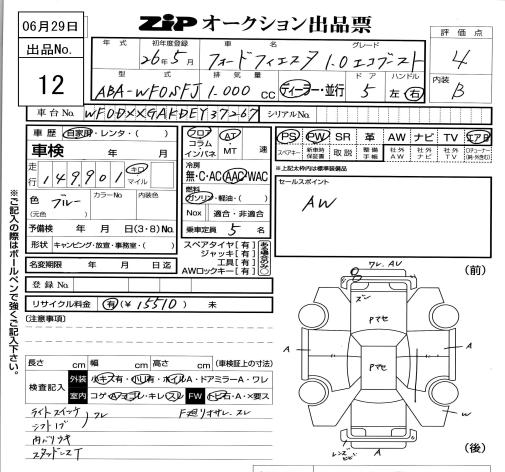 06月29日
ZIP オークション出品票
出品No.
12
評価点
4
内装
B
年式
初年度登録
26年5月
車名
フォードフィエスタ
グレード
1.0エコブースト
型式
ABA-WF0SFJ
排気量
1.000 cc
ディーラー・並行
ドア
5
ハンドル
左 右
車台No.
WF0DXXGAKDEY37267
シリアルNo.
車歴 自家用・レンタ・( )
車検 年 月
走行 149,901 キロ マイル
色 ブルー
(元色)
カラーNo.
内装色
予備検 年 月 日(3・8)No.
形状 キャンピング・放宣・事務室・( )
名変期限 年 月 日迄
フロア コラム インパネ
AT・MT 速
冷房
無・C・AC AAC WAC
燃料
ガソリン・軽油・( )
Nox 適合・非適合
乗車定員 5 名
スペアタイヤ[有]
ジャッキ[有]
工具[有]
AWロックキー[有]
PS PW SR 革 AW ナビ TV エアB
スペアキー 新車時保証書 取説 整備手帳 社外AW 社外ナビ 社外TV
※上記太枠内は標準装備品
セールスポイント
AW
登録No.
リサイクル料金 有(¥15510) 未
(注意事項)
長さ cm 幅 cm 高さ cm (車検証上の寸法)
検査記入
外装 小キズ有・小凹有・ホイルA・ドアミラーA・ワレ
室内 コゲA・ヨゴレ・キレ・スレ FW トビ石・A・×要ス
ライトスイッチ
シフトノブ
スレ
内バリキ
スタッドレスT
F廻りサゲスレ、スレ
(前)
ワレ、AU
Pマセ
Pマセ
A
A
W
(後)
※ご記入の際はボールペンで強くご記入下さい。